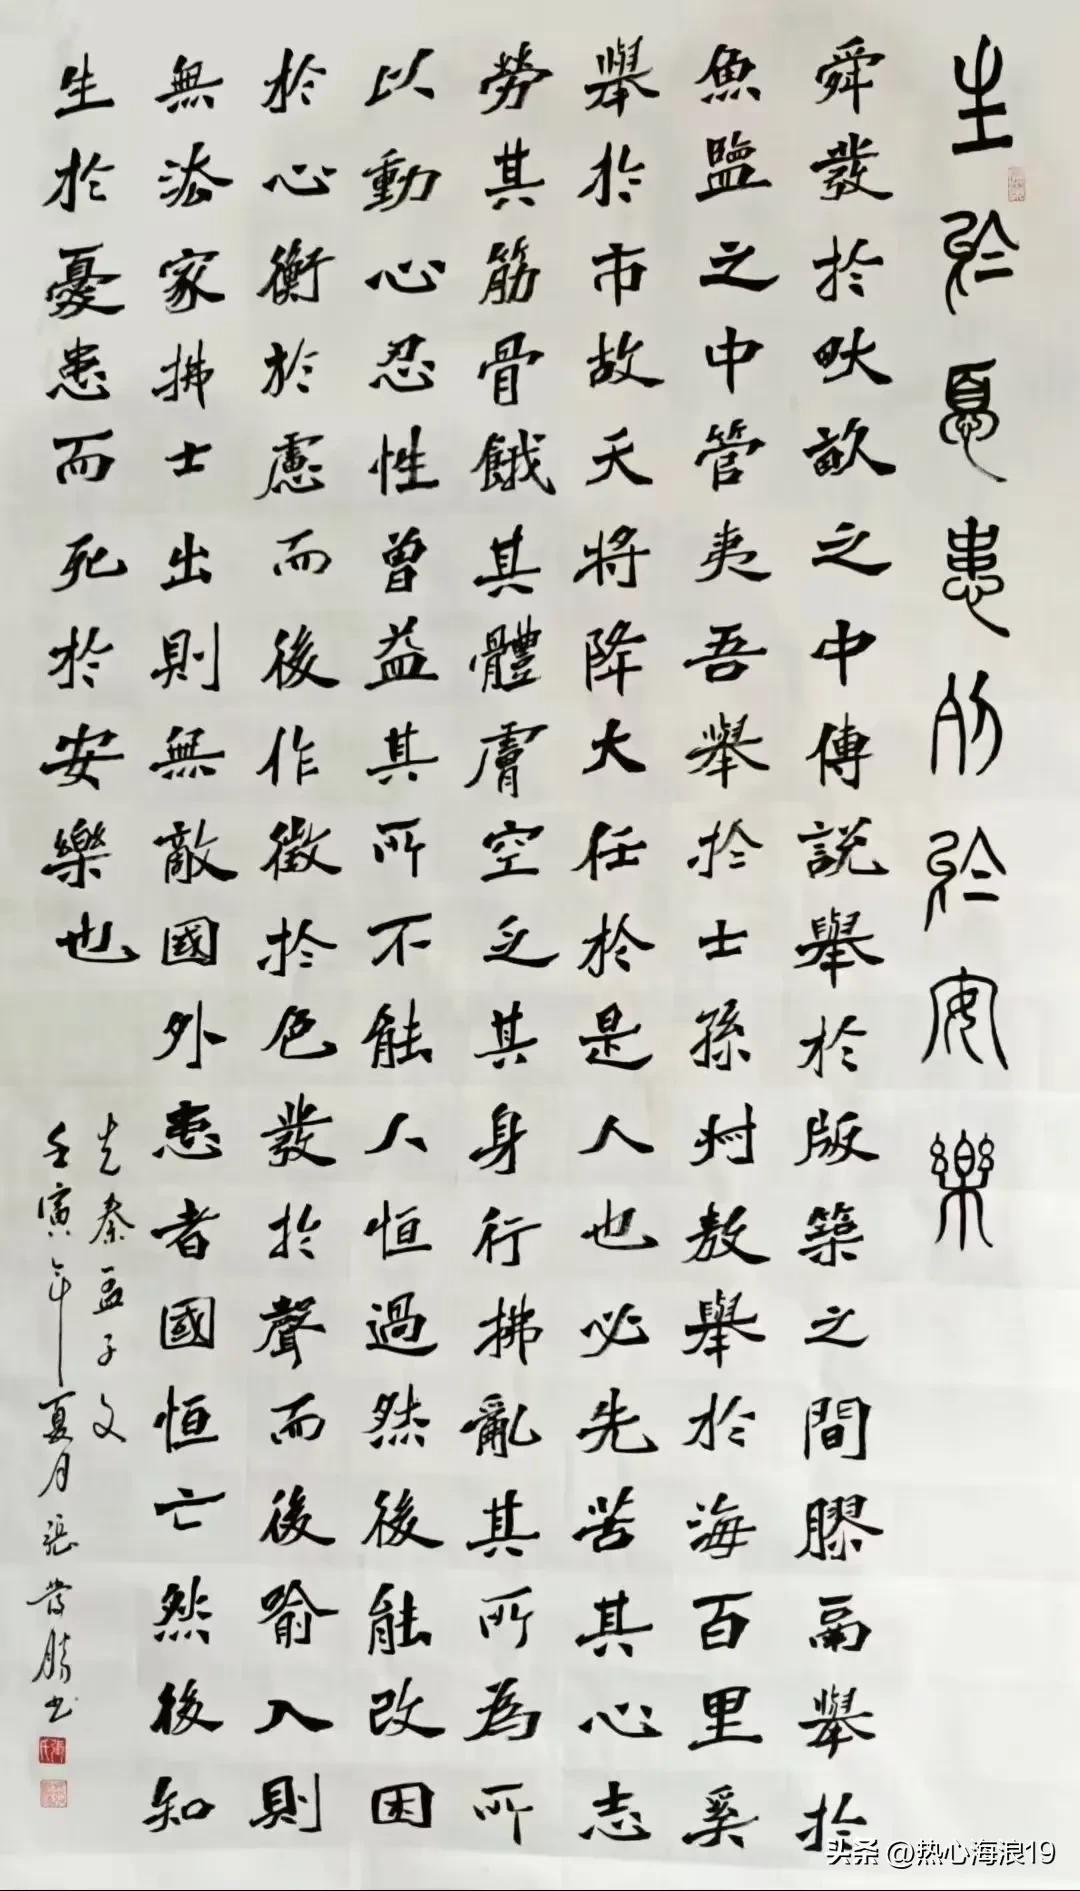 生於憂患死於安樂
舜發於畎畝之中傅說舉於版築之間膠鬲舉於
魚鹽之中管夷吾舉於士孫叔敖舉於海百里奚
舉於市故天將降大任於是人也必先苦其心志
勞其筋骨餓其體膚空乏其身行拂亂其所為所
以動心忍性曾益其所不能人恒過然後能改困
於心衡於慮而後作徵於色發於聲而後喻入則
無法家拂士出則無敵國外患者國恒亡然後知
生於憂患而死於安樂也
先秦孟子文
壬寅年夏月張勝書
头条 @热心海浪19